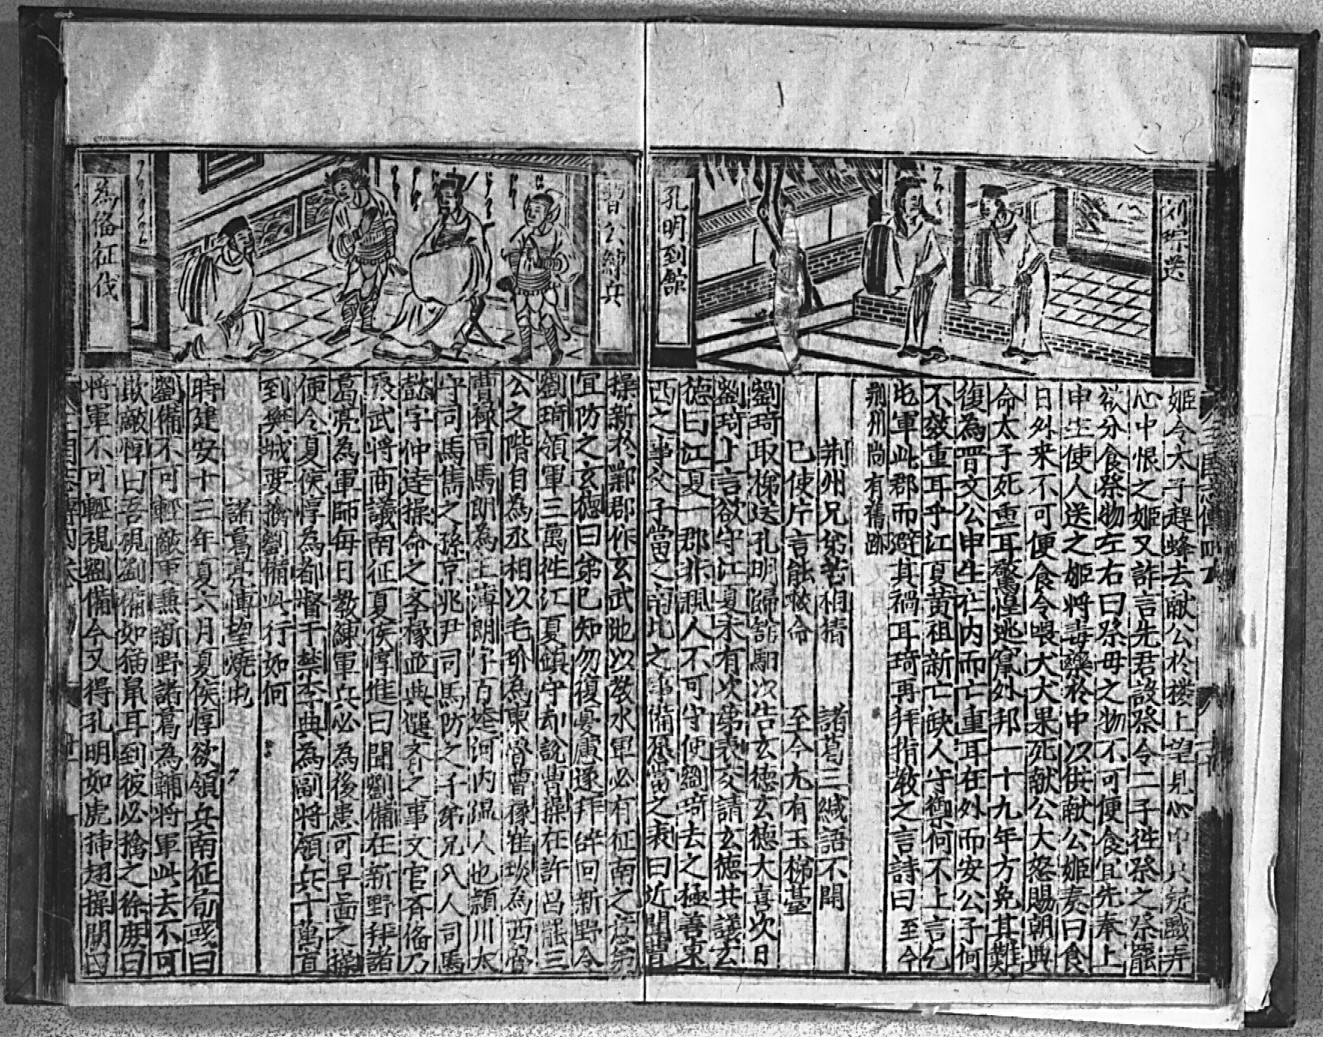 孔明到館
為俻征伐
姬令太子趕蜂去献公扵楼上望見心中
心中恨之姬又詐言先君設祭令二子徃祭之祭罷
欲分食祭物左右曰祭毋之物不可便食宜先奉上
申生使人送之姬將毒藥扵中以供献公姬奏曰食
日外来不可便食令喂犬犬果死献公大怒賜朝典
命太子死重耳驚惶逃竄外邦一十九年方免其難
復為晋文公申生在内而亡重耳在外而安公子何
不效重耳乎江夏黄祖新亡缺人守禦何不上言乞
屯軍此郡而避其禍耳琦再拜指教之言詩曰至今
荆州尚有舊跡
荆州兄弟苦相猜 諸葛三緘語不開
已使片言能救命 至今尤有玉梯臺
劉琦取梯送孔明歸館馹次告玄德玄德大喜次日
劉琦上言欲守江夏未有次第表交請玄德共議玄
德曰江夏一郡非親人不可守便劉琦去之極善東
西之事父子當之南北之事俻愿當之表曰近聞曹
操新扵鄴郡作玄武池以教水軍必有征南之意弟
宜防之玄德曰弟已知勿復憂慮遂拜辞回新野令
劉琦領軍三萬徃江夏鎮守却説曹操在許昌罷三
公之階自為丞相以毛玠為東曹曹椽崔琰為西曹
曹椽司馬朗為主薄朗字方逵河内温人也潁川太
守司馬雋之孫京兆尹司馬防之子弟兄八人司馬
懿字仲逹操命之文椽並典選斉之事文官斉俻乃
聚武將商議南征夏侯惇進曰聞劉備在新野拜諸
葛亮為軍師毎日教鍊軍兵必為後患可早啚之操
便令夏侯惇為都督于禁李典為副將領兵十萬直
到樊城要擒劉備此行如何
諸葛亮博望燒屯
時建安十三年夏六月夏侯惇欲領兵南征荀彧曰
劉備不可輕敵更兼新野諸葛為輔將軍此去不可
欺敵惇曰吾視劉備如猫鼠耳到彼必擒之徐庶曰
將軍不可輕視劉備今又得孔明如虎揷翅操聞曰